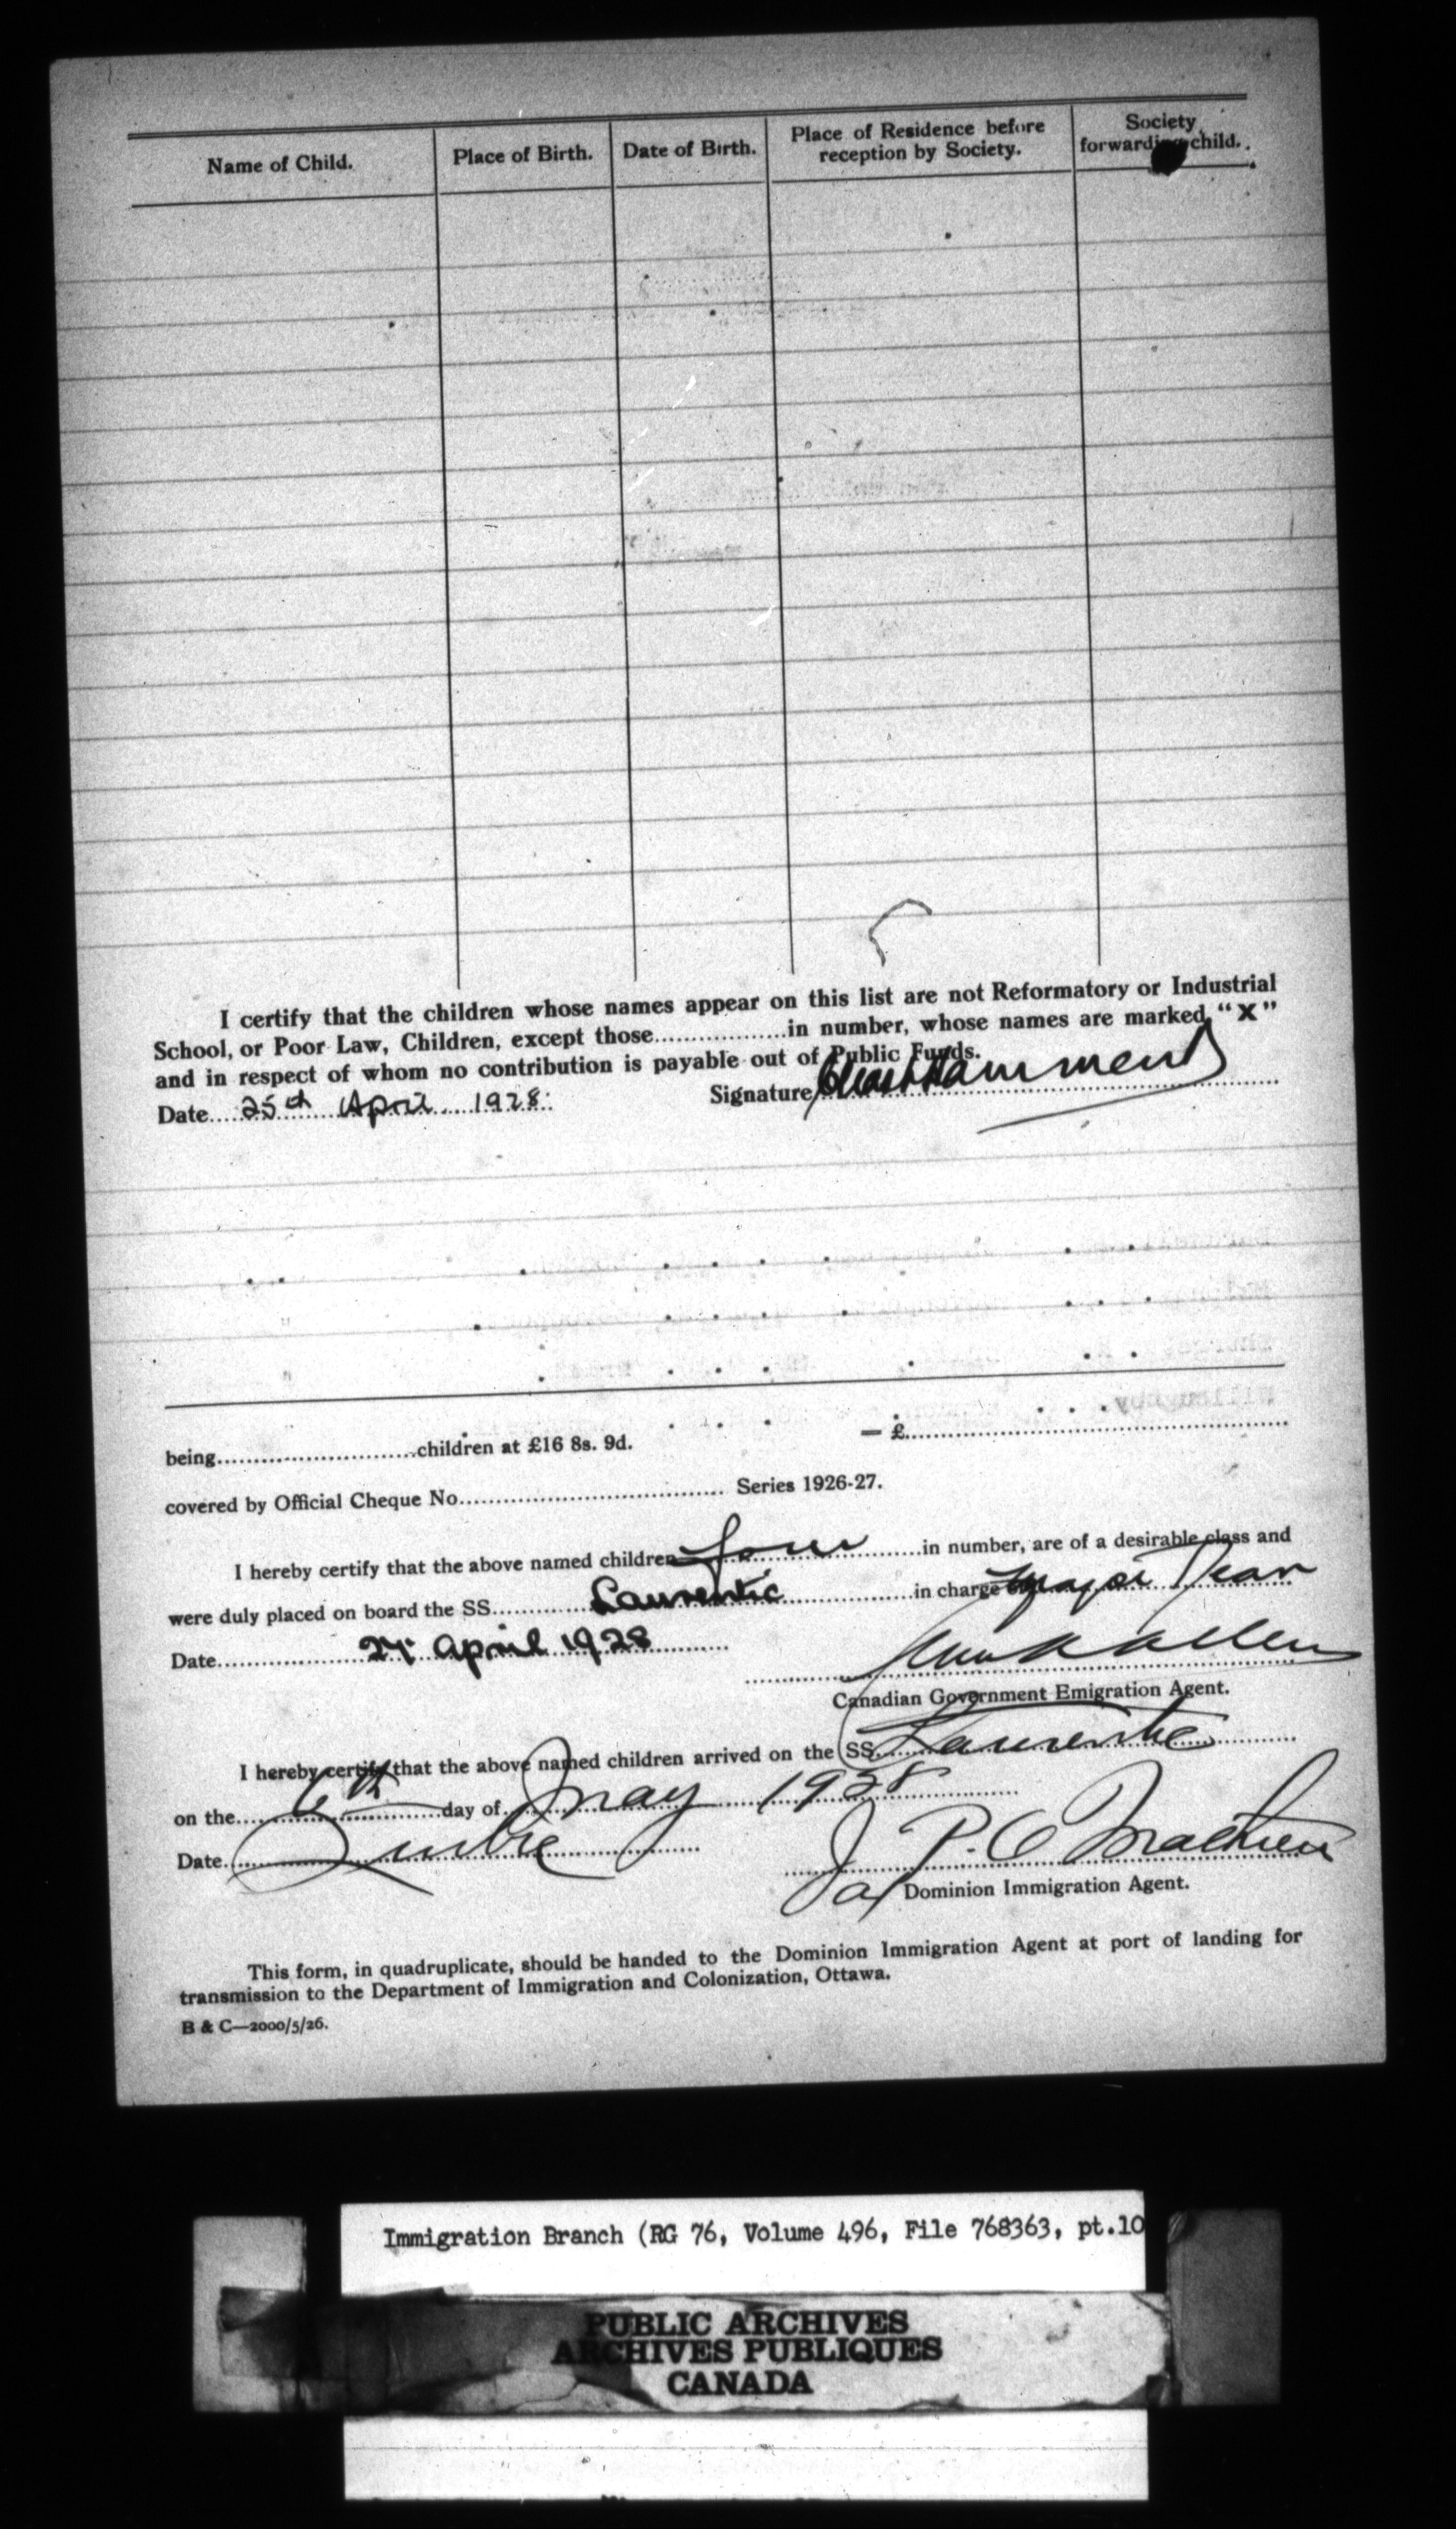 Name of Child.
Place of Birth.
Date of Birth.
Place of Residence before
reception by Society.
Society
forwarding child.
I certify that the children whose names appear on this list are not Reformatory or Industrial
School, or Poor Law, Children, except those..................in number, whose names are marked "X"
and in respect of whom no contribution is payable out of Public Funds.
Date....25th April 1928.
Signature
being...........................children at £16 8s. 9d.
— £..................................................
covered by Official Cheque No.................................... Series 1926-27.
I hereby certify that the above named children four in number, are of a desirable class and
were duly placed on board the SS. Laurentic in charge Major
Date April 1928
Canadian Government Emigration Agent.
I hereby certify that the above named children arrived on the SS. Laurentic
on the 6th day of May 1928
Date
J P. O
Dominion Immigration Agent.
This form, in quadruplicate, should be handed to the Dominion Immigration Agent at port of landing for
transmission to the Department of Immigration and Colonization, Ottawa.
B & C—2000/5/26.
Immigration Branch (RG 76, Volume 496, File 768363, pt.10
PUBLIC ARCHIVES
ARCHIVES PUBLIQUES
CANADA